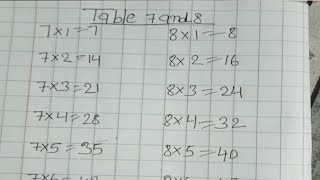 Table 7 and 8
7×1=7 8×1=8
7×2=14 8×2=16
7×3=21 8×3=24
7×4=28 8×4=32
7×5=35 8×5=40